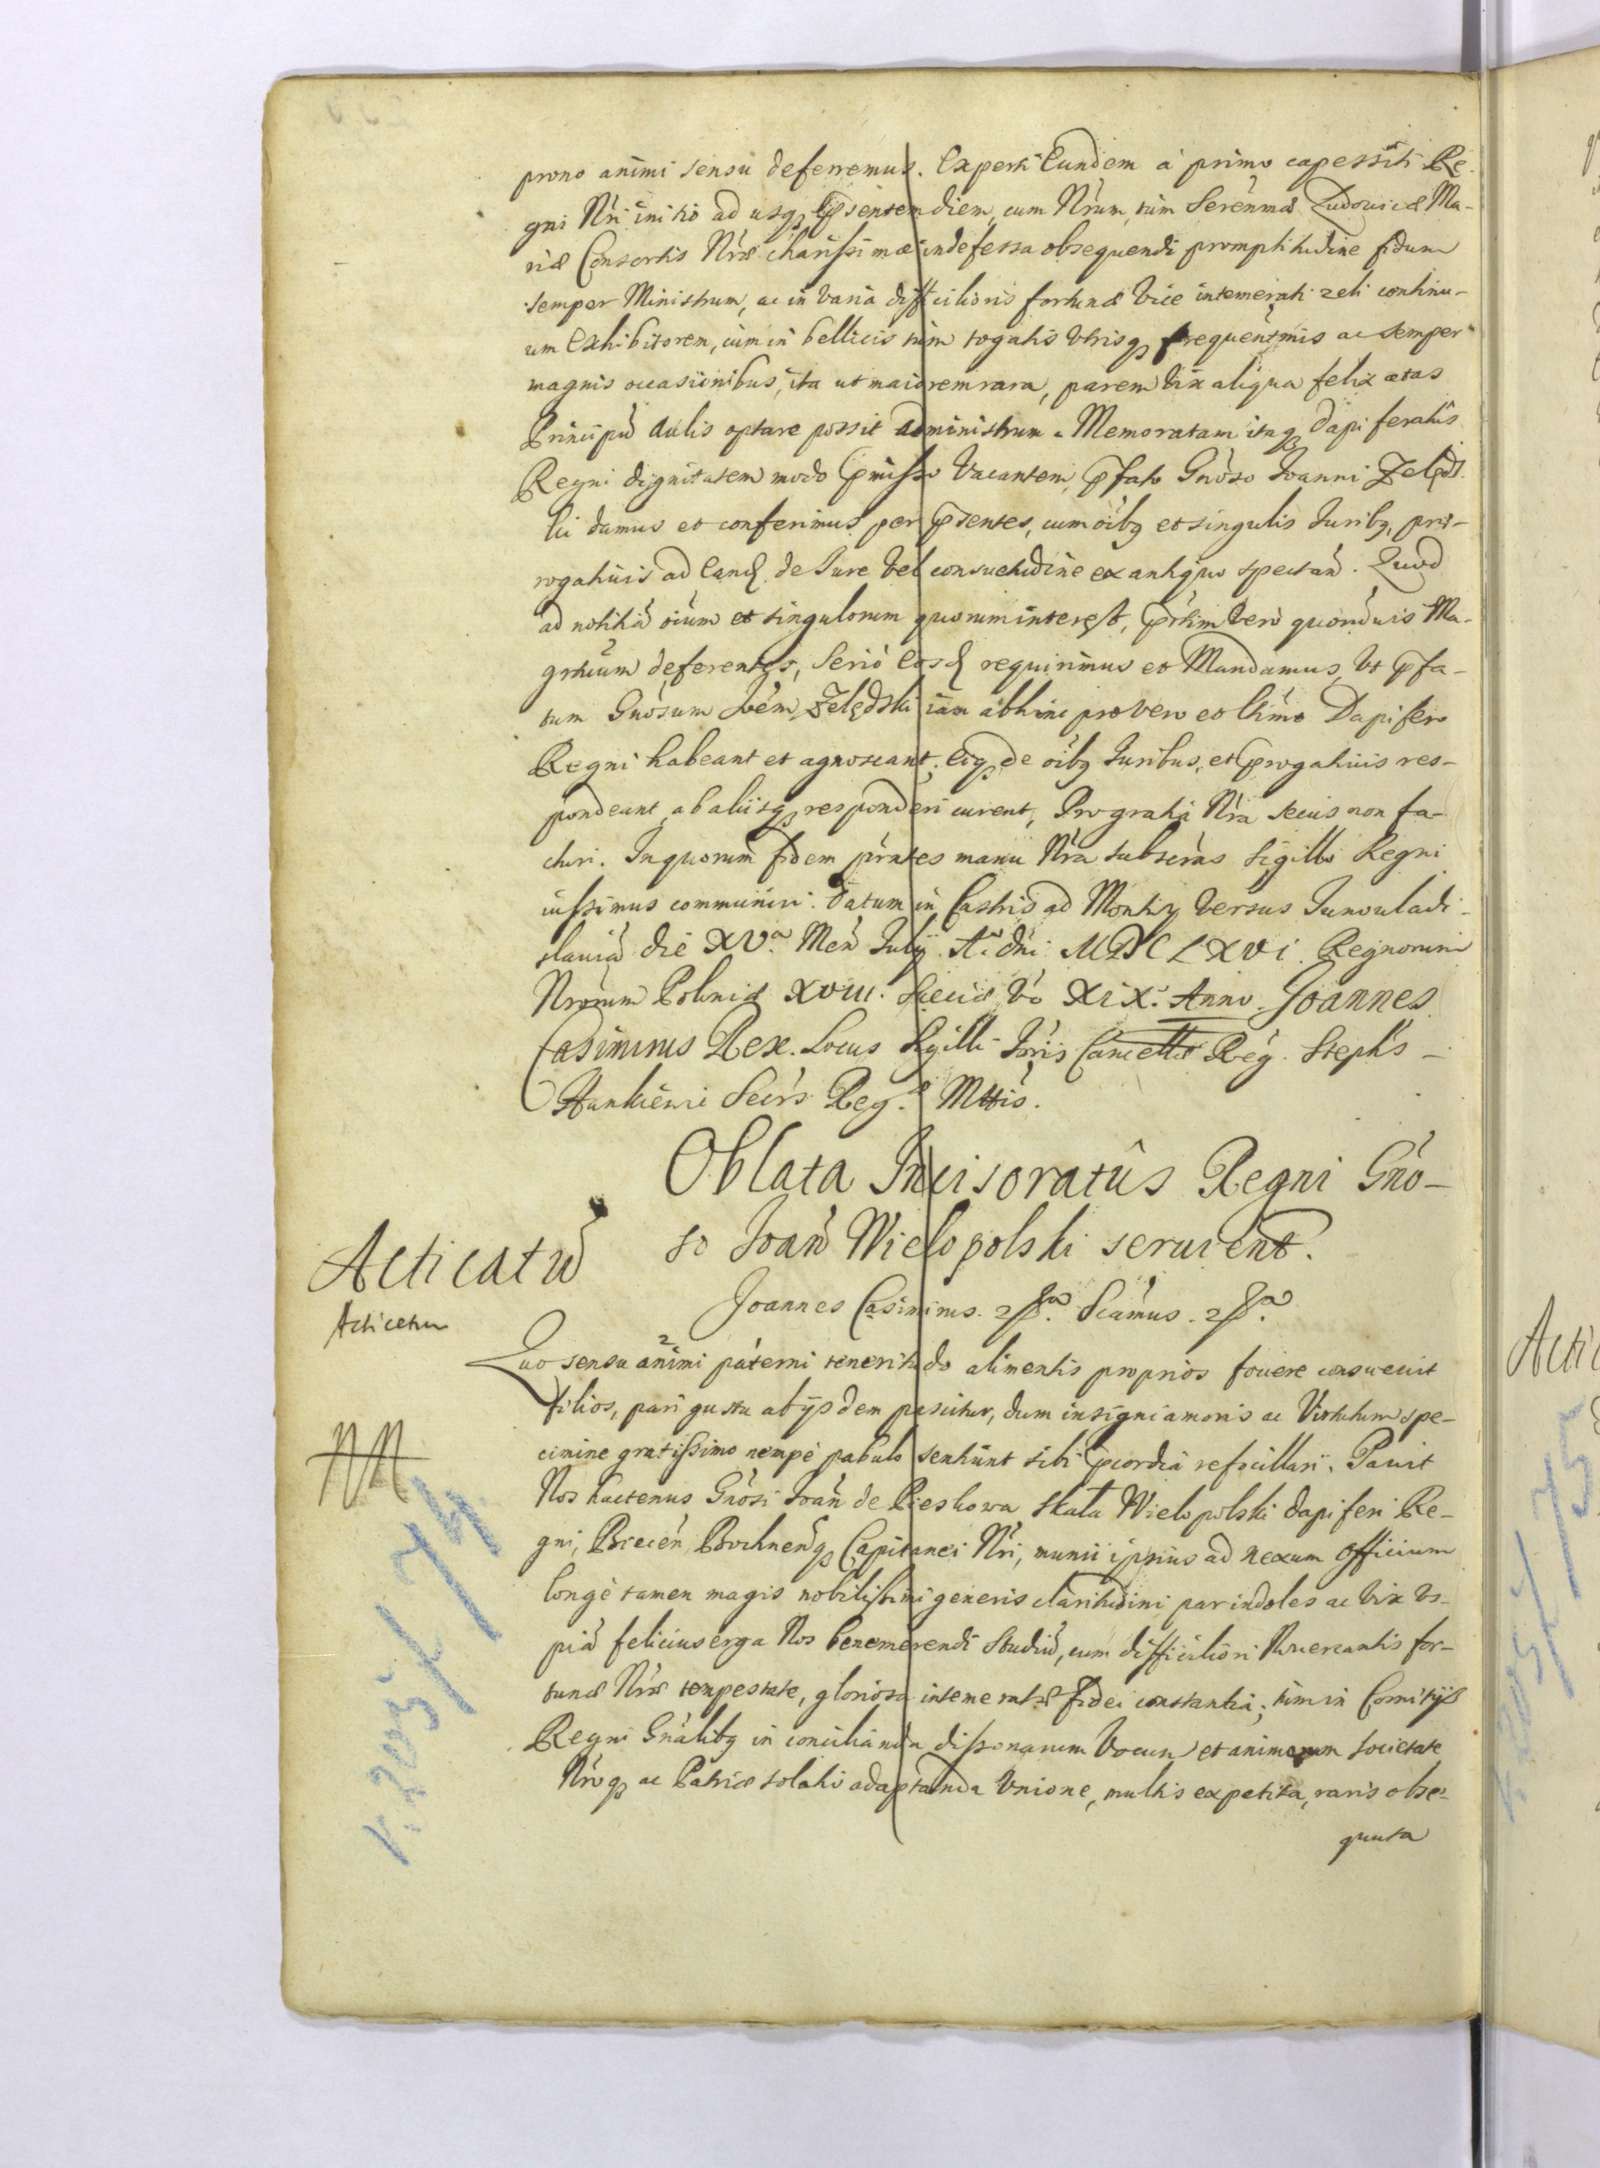 prono animi sensu deferremus. Experti Eundem á primo capessiti Re-
gni Nri initio ad usq₃ psentem diem, cum Nrum, tum Serenmæ Ludouicæ Ma-
riæ Consortis Nræ charissimæ indefessa obsequendi promptitudine fidum
semper Ministrum, ac in varia difficilioris fortunæ vice intemerati zeli continu-
um Exhibitorem, cum in bellicis tum togatis vtrisq₃ frequentmis ac semper
magnis occasionibus, ita ut maiorem rara, parem vix aliqua felix ætas
Principū Aulis optare possit administrum. Memoratam itaq₃ Dapiferatus
Regni dignitatem modo pmisso Vacantem, pfato Gnoso Ioanni Zelęds
ki damus et conferimus per psentes, cum oibq et singulis Iuribq, prę-
rogatiuis ad Eand. de Iure Vel consuetudine ex antiquo spectan. Quod
ad notitiā oium et singulorum quorum interest, prtim vero quorūuis Ma-
grtuum deferentes, serió Eosd requirimus et Mandamus, Vt pfa-
tum Gnosum Ioem Zelędski iam abhinc pro vero et ltimo Dapifero
Regni habeant et agnoscant, eiq₃ de oibq Iuribus, et progatiuis res-
pondeant, ab aliisq₃ responderi curent, Pro gratia Nra secus non fa-
cturi. In quorum fidem prntes manu Nra subscras Sigillo Regni
iussimus communiri. Datum in Castris ad Montwy versus Iunouladi-
slauiā die XVa Men Iulij. Ao dni MDCLXVI. Regnorum
Nrorum Poloniæ XVIII. Sueciæ Vo XIX. Anno. Joannes
Casimirus Rex. Locus Sigilli Ioris Cancellæ Reg. Stephs
Hankiewic Secrs Reg. Mttis.
Oblata Incisoratûs Regni Gno-
so Ioan Wielopolski seruient.
Acticatū
Acticetur
Joannes Casimirus. Scamus.
Quo sensu animi paterni teneritudo alimentis proprios fouere consueuit
filios, pari gustu abijsdem pascitur, dum insigni amoris ac Virtutum spe-
cimine gratissimo nempè pabulo sentiunt sibi pcordia refocillari. Pauit
Nos hactenus Gnosi Ioan de Pieskowa Skała Wielopolski dapiferi Re-
gni, Biecen Bochnenq₃ Capitanei Nri, munii ipsius ad nexum Officium
longè tamen magis nobilissimi generis claritudini par indoles ac vix vs-
piā felicius erga Nos benemerendi Studiū, cum difficiliori Nouercantis for-
tunæ Nræ tempestate, gloriosa intemeratæ fidei constantia; tum in Comitijs
Regni Gnalibq in concilianda dissonarum Vocum et animorum societate
Nroq₃ ac Patriæ solatio adaptanda Vnione, multis expetita, raris obse-
quuta